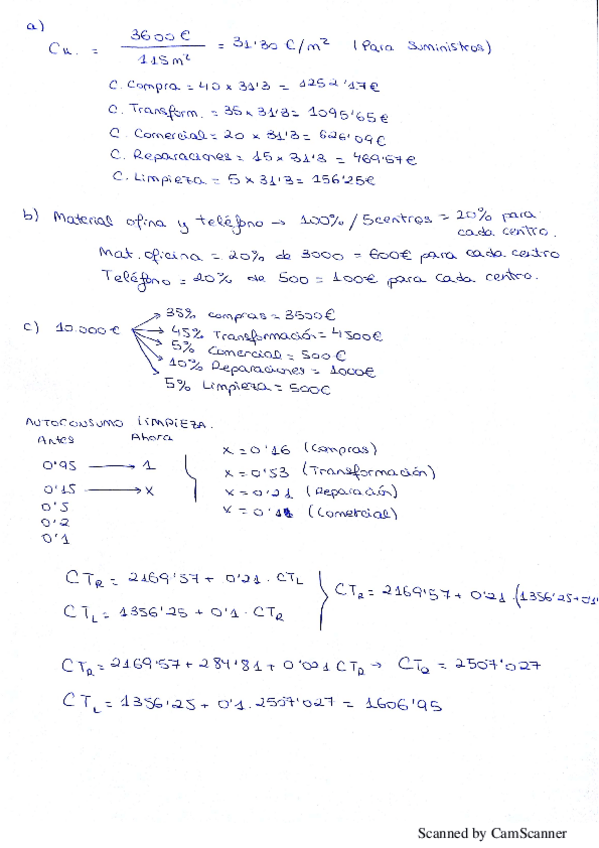 a)
Cu. = 3600€ / 115m² = 31'30 €/m² (Para suministros)
C. Compra = 40 x 31'3 = 1252'17€
C. Transform. = 35 x 31'3 = 1095'65€
C. Comercial = 20 x 31'3 = 626'09€
C. Reparaciones = 15 x 31'3 = 469'57€
C. Limpieza = 5 x 31'3 = 156'25€
b) Material ofina y teléfono → 100% / 5 centros = 20% para
cada centro.
Mat. oficina = 20% de 3000 = 600€ para cada centro
Teléfono = 20% de 500 = 100€ para cada centro.
35% compras = 3500€
c) 10.000€ 45% Transformación = 4500€
5% Comercial = 500€
10% Reparaciones = 1000€
5% Limpieza = 500€
AUTOCONSUMO LIMPIEZA.
Antes Ahora
0'95 → 1
0'15 → x
0'5
0'2
0'1
x = 0'16 (Compras)
x = 0'53 (Transformación)
x = 0'21 (Reparación)
x = 0'1 (Comercial)
CTR = 2169'57 + 0'21 · CTL
CTL = 1356'25 + 0'1 · CTR
CTR = 2169'57 + 0'21 · (1356'25 + 0'1
CTR = 2169'57 + 284'81 + 0'021 CTR → CTR = 2507'027
CTL = 1356'25 + 0'1 · 2507'027 = 1606'95
Scanned by CamScanner